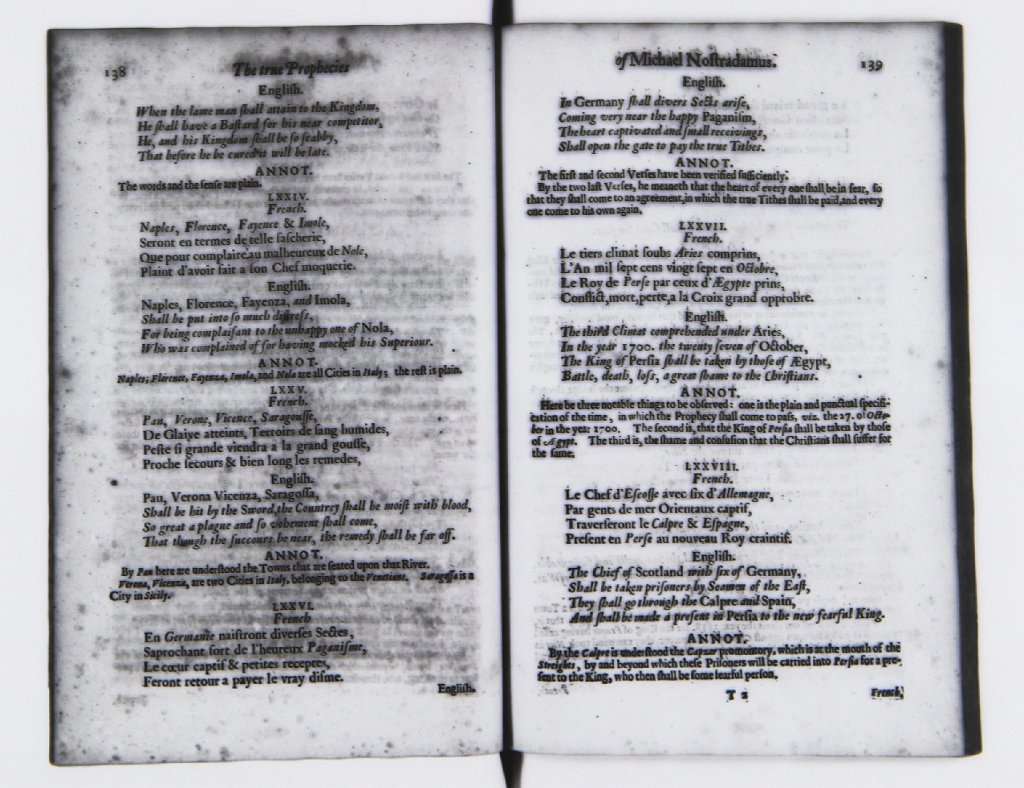 138
The true Prophecies
Engliſh.
When the lame man ſhall attain to the Kingdom,
He ſhall have a Baſtard for his near competitor,
He, and his Kingdom ſhall be ſo ſcabby,
That before he be cured it will be late.
ANNOT.
The words and the ſenſe are plain.
LXXIV.
French.
Naples, Florence, Fayence & Imole,
Seront en termes de telle faſcherie,
Que pour complaire au malheureux de Nole,
Plaint d'avoir fait a ſon Chef moquerie.
Engliſh.
Naples, Florence, Fayenza, and Imola,
Shall be put into ſo much diſtreſs,
For being complaiſant to the unhappy one of Nola,
Who was complained of for having mocked his Superiour.
ANNOT.
Naples, Florence, Fayenza, Imola, and Nola are all Cities in Italy; the reſt is plain.
LXXV.
French.
Pau, Verone, Vicence, Saragouſſe,
De Glaive atteints, Terroirs de ſang humides,
Peſte ſi grande viendra a la grand gouſſe,
Proche ſecours & bien long les remedes,
Engliſh.
Pau, Verona Vicenza, Saragoſſa,
Shall be hit by the Sword, the Countrey ſhall be moiſt with blood,
So great a plague and ſo vehement ſhall come,
That though the ſuccours be near, the remedy ſhall be far off.
ANNOT.
By Pau here are underſtood the Towns that are ſeated upon that River.
Verona, Vicenza, are two Cities in Italy, belonging to the Venetians. Saragoſſa is a
City in Sicily.
LXXVI.
French
En Germanie naiſtront diverſes Sectes,
Saprochant fort de l'heureux Paganiſme,
Le cœur captif & petites receptes,
Feront retour a payer le vray diſme.
Engliſh.
of Michael Noſtradamus.
139
Engliſh.
In Germany ſhall divers Sects ariſe,
Coming very near the happy Paganiſm,
The heart captivated and ſmall receivings,
Shall open the gate to pay the true Tithes.
ANNOT.
The firſt and ſecond Verſes have been verified ſufficiently.
By the two laſt Verſes, he meaneth that the heart of every one ſhall be in fear, ſo
that they ſhall come to an agreement, in which the true Tithes ſhall be paid, and every
one come to his own again.
LXXVII.
French.
Le tiers climat ſoubs Aries comprins,
L'An mil ſept cens vingt ſept en Octobre,
Le Roy de Perſe par ceux d'Ægypte prins,
Conflict, mort, perte, a la Croix grand opprobre.
Engliſh.
The third Climat comprehended under Aries,
In the year 1700. the twenty ſeven of October,
The King of Perſia ſhall be taken by thoſe of Ægypt,
Battle, death, loſs, a great ſhame to the Chriſtians.
ANNOT.
Here be three notable things to be obſerved: one is the plain and punctual ſpecifi-
cation of the time, in which the Prophecy ſhall come to paſs, viz. the 27. of Octo-
ber in the year 1700. The ſecond is, that the King of Perſia ſhall be taken by thoſe
of Ægypt. The third is, the ſhame and confuſion that the Chriſtians ſhall ſuffer for
the ſame.
LXXVIII.
French.
Le Chef d'Eſcoſſe avec ſix d'Allemagne,
Par gents de mer Orientaux captif,
Traverſeront le Calpre & Eſpagne,
Preſent en Perſe au nouveau Roy craintif.
Engliſh.
The Chief of Scotland with ſix of Germany,
Shall be taken priſoners by Seamen of the Eaſt,
They ſhall go through the Calpre and Spain,
And ſhall be made a preſent in Perſia to the new fearful King.
ANNOT.
By the Calpre is underſtood the promontory, which is at the mouth of the
Streights, by and beyond which theſe Priſoners will be carried into Perſia for a pre-
ſent to the King, who then ſhall be ſome fearful perſon.
T 2
French,